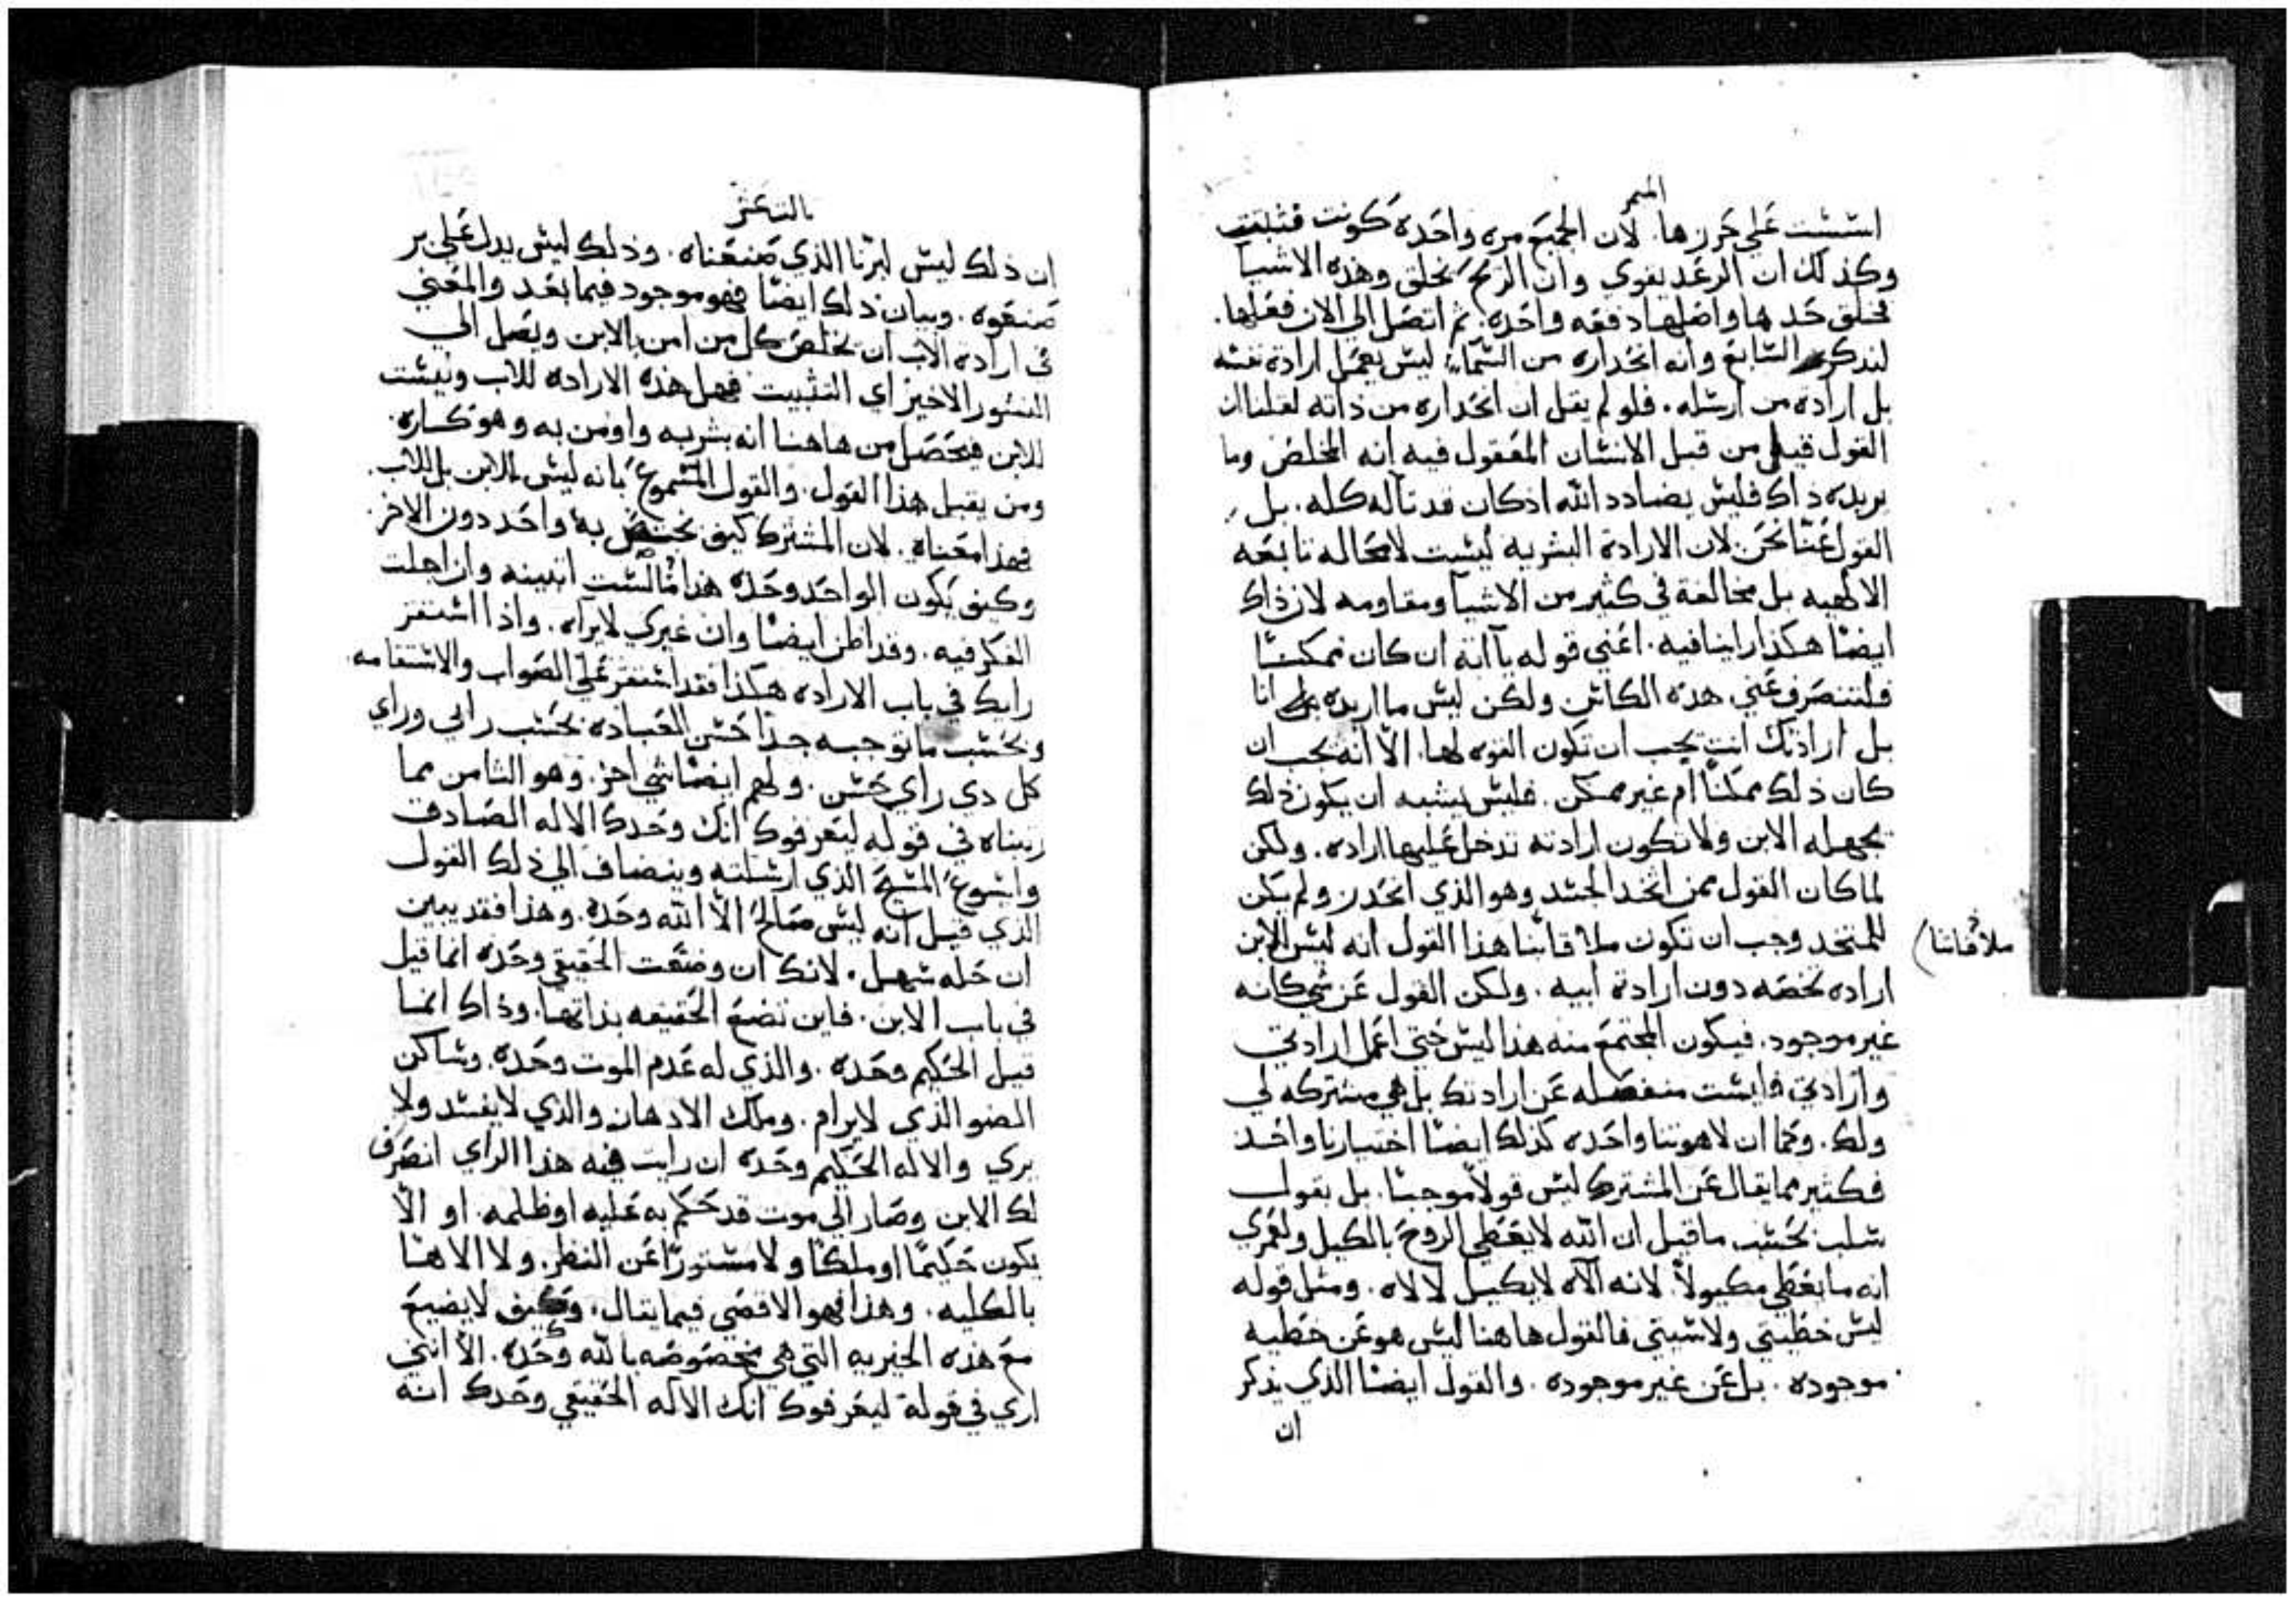 المبمر
اسست على حرزها. لان الجميع مره واحده كونت فثبتت
وكذلك ان الرعد يقوي وان الريح تخلق وهذه الاشيا
فخلق حدها واصلها دفعه واحده. ثم اتصل الي الان فعلها.
لنذكر السابع وانه انحداره من السما، ليس يعمل ارادة نفسه
بل ارادة من ارسله. فلو لم يقل ان انحداره من ذاته لقلنا ان
القول قيل من قبل الانسان المعقول فيه انه المخلص وما
يريده ذاك فليس يضادد الله اذ كان قد تاله كله. بل
القول عنا نحن لان الارادة البشريه ليست لامحاله تابعه
الالهيه بل مخالفة في كثير من الاشيا ومقاومه لان ذاك
ايضا هكذا راينا فيه. اعني قوله يا ابة ان كان ممكنا
فلتنصرف عني هذه الكاس ولكن ليس ما اريده انا
بل ارادتك انت يجب ان تكون القوه لها. الا انه يجب ان
كان ذلك ممكنا ام غير ممكن. فليس يشبه ان يكون ذلك
يجهله الابن ولا تكون ارادته تدخل عليها اراده. ولكن
لما كان القول ممن اتخد الجسد وهو الذي انحدر ولم يكن
للمتخد وجب ان تكون ملاقاتنا هذا القول انه ليس للابن
ملاقاتنا
اراده تخصه دون ارادة ابيه. ولكن القول عن شي كانه
غير موجود. فيكون المجتمع منه هذا ليس حتي اعمل ارادتي
وارادتي فليست منفصله عن ارادتك بل هي مشتركه لي
ولك. وكما ان لاهوتنا واحده كذلك ايضا اختيارنا واحد
فكثير مما يقال عن المشترك ليس قولا موجبا. بل بقول
سلب بحسب ما قيل ان الله لا يعطي الروح بالكيل ولعمري
انه ما يعطي مكيولا. لانه الاه لا يكيل لالاه. ومثل قوله
ليس خطيتي ولا سيتي فالقول هاهنا ليس هو عن خطيه
موجوده. بل عن غير موجوده. والقول ايضا الذي يذكر
ان
ان ذلك ليس لبرنا الذي صنعناه. وذلك ليس يدل علي بر
صنعوه. وبيان ذلك ايضا فهو موجود فيما بعد والمعني
في ارادة الاب ان يخلص كل من امن بالابن ويصل الي
النشور الاخير اي التثبيت فهل هذه الاراده للاب وليست
للابن فيحصل من هاهنا انه بشر به واومن به وهو كاره.
ومن يقبل هذا القول. والقول المسموع بانه ليس للابن بل للاب.
فهذا معناه. لان المشترك كيف يختص به واحد دون الاخر.
وكيف يكون الواحد وحده هذا ما لست اتبينه وان اجلت
الفكر فيه. وقد اظن ايضا وان غيرك لا يراه. واذا استقر
رايك في باب الاراده هكذا فقد استقر علي الصواب والاستقامه.
وبحسب ما توجبه جدا حسن العباده بحسب رايي وراي
كل دي راي حسن. ولهم ايضا شي اخر. وهو الثامن مما
زيناه في قوله ليعرفوك انك وحدك الاله الصادق
وايسوع المسيح الذي ارسلته وينضاف الي ذلك القول
الذي قيل انه ليس صالح الا الله وحده. وهذا فقد يبين
ان حله سهل. لانك ان وضعت الحقيقي وحده انما قيل
في باب الابن. فاين تضع الحقيقه بذاتها. وذاك انما
قيل الحكيم وحده. والذي له عدم الموت وحده. وساكن
الضو الذي لا يرام. وملك الادهان والذي لا يفسد ولا
يري والاله الحكيم وحده ان رايت فيه هذا الراي انصرف
لك الابن وصار الي موت قد حكم به عليه او ظلمه. او الا
يكون حكيما او ملكا ولا مستورا عن النظر. ولا الاها
بالكليه. وهذا فهو الاقصي فيما يقال. وكيف لا يضيع
مع هذه الخيريه التي هي مخصوصه بالله وحده. الا انني
اري في قولة ليعرفوك انك الاله الحقيقي وحدك انه